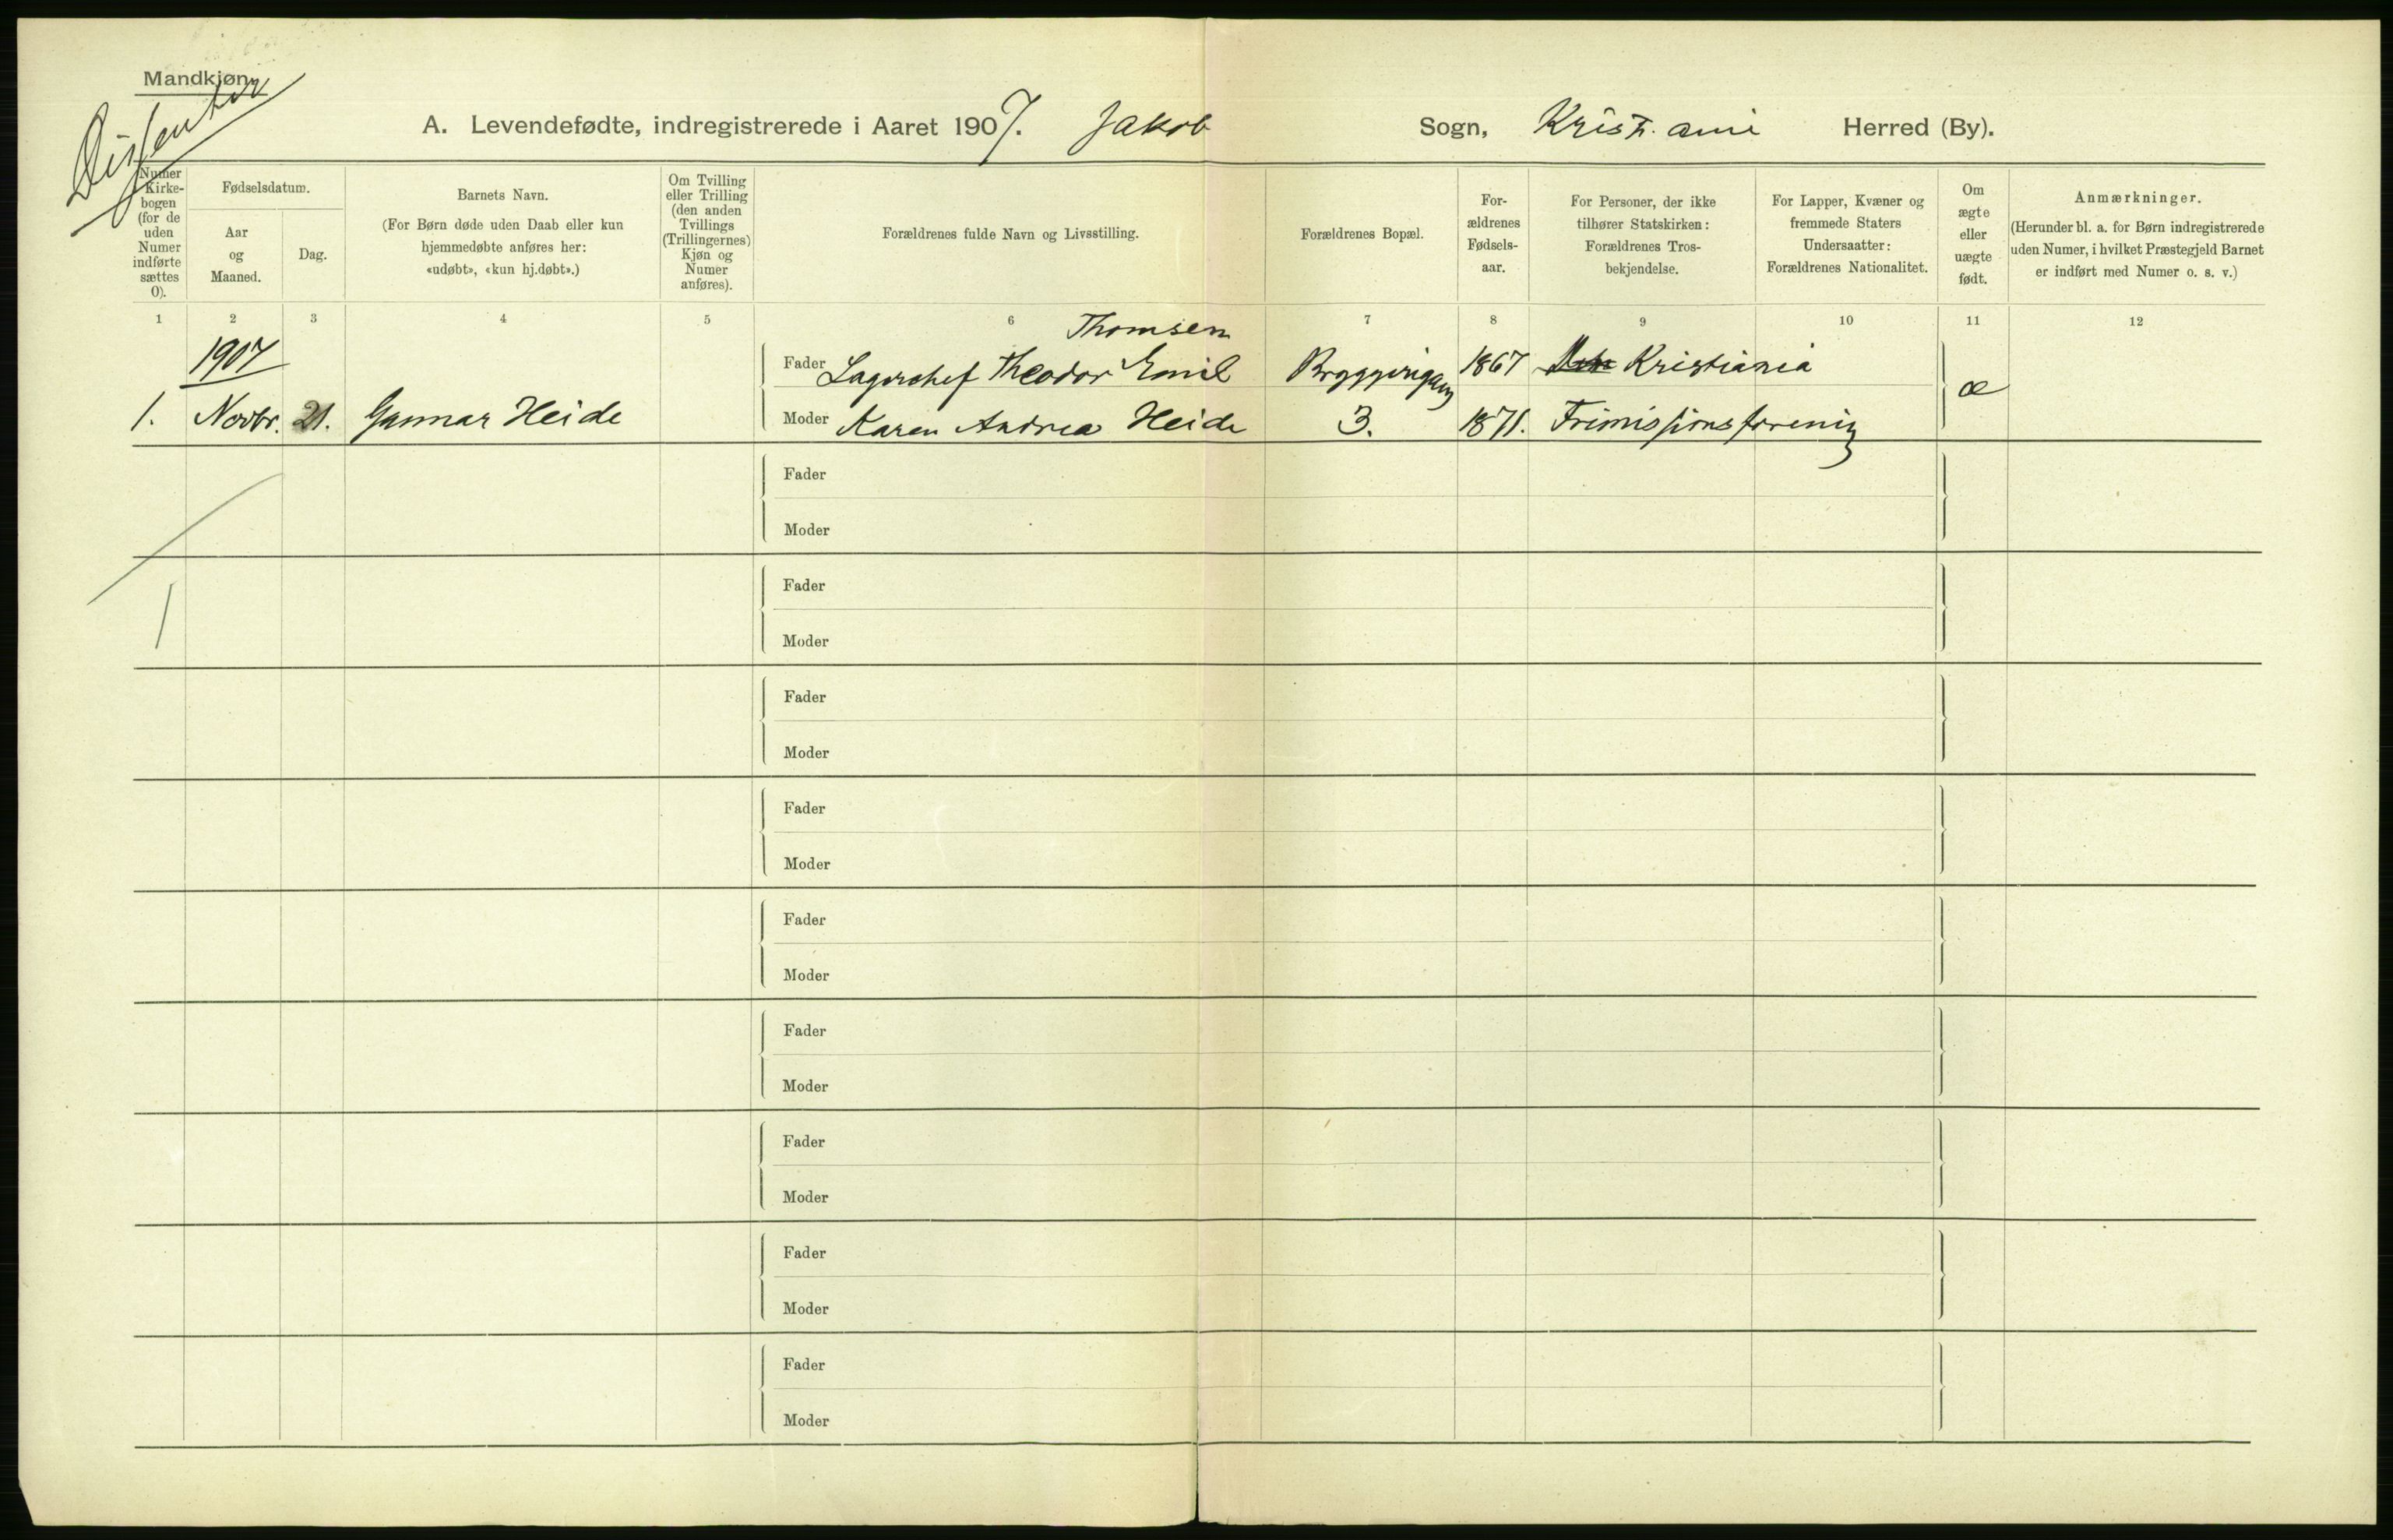 Mandkjøn.
Dissenter
A. Levendefødte, indregistrerede i Aaret 1907. Jakob Sogn, Herred (By).
Numer
Kirke-
bogen
(for de
uden
Numer
indførte
sættes
0).
Fødselsdatum.
Aar
og
Maaned.
Dag.
Barnets Navn.
(For Børn døde uden Daab eller kun
hjemmedøbte anføres her:
«udøbt», «kun hj.døbt».)
Om Tvilling
eller Trilling
(den anden
Tvillings
(Trillingernes)
Kjøn og
Numer
anføres).
Forældrenes fulde Navn og Livsstilling.
Forældrenes Bopæl.
For-
ældrenes
Fødsels-
aar.
For Personer, der ikke
tilhører Statskirken:
Forældrenes Tros-
bekjendelse.
For Lapper, Kvæner og
fremmede Staters
Undersaatter:
Forældrenes Nationalitet.
Om
ægte
eller
uægte
født.
Anmærkninger.
(Herunder bl. a. for Børn indregistrerede
uden Numer, i hvilket Præstegjeld Barnet
er indført med Numer o. s. v.)
1 2 3 4 5 6 7 8 9 10 11 12
Thomsen
1907 Fader Lagerchef Theodor Emil 1867 Kristiania
æ
1. Novbr. 21. Gunnar Heide Moder Karen Andrea Heide 3. 1871. Frimissionsforening
Fader
Moder
Fader
Moder
Fader
Moder
Fader
Moder
Fader
Moder
Fader
Moder
Fader
Moder
Fader
Moder
Fader
Moder